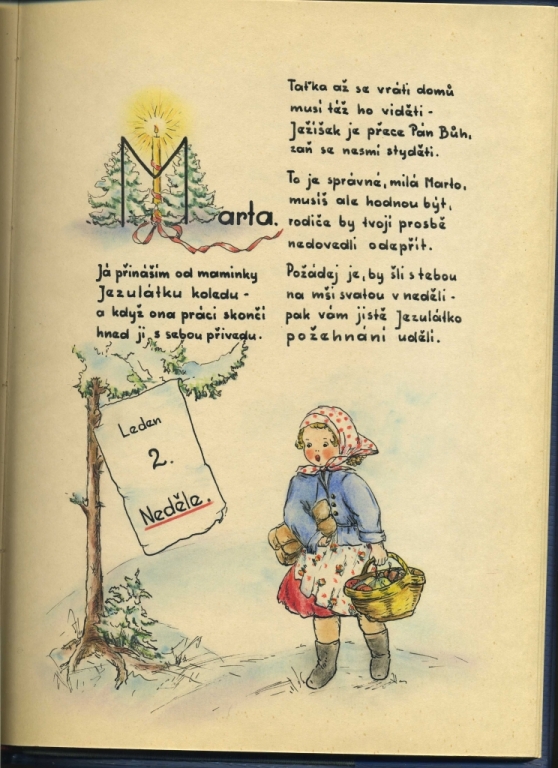 Marta.
Já přináším od maminky
Jezulátku koledu -
a když ona práci skončí
hned ji s sebou přivedu.
Taťka až se vrátí domů
musí též ho viděti -
Ježíšek je přece Pán Bůh,
zaň se nesmí styděti.
To je správné, milá Marto,
musíš ale hodnou být,
rodiče by tvojí prosbě
nedovedli odepřít.
Požádej je, by šli s tebou
na mši svatou v neděli -
pak vám jistě Jezulátko
požehnání udělí.
Leden
2.
Neděle.